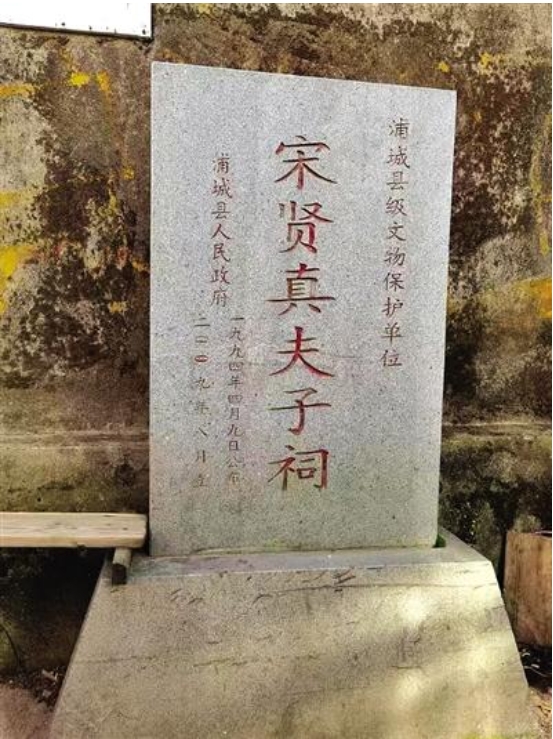 浦城县级文物保护单位
宋贤真夫子祠
浦城县人民政府
一九九四年四月九日公布
二〇〇九年八月立